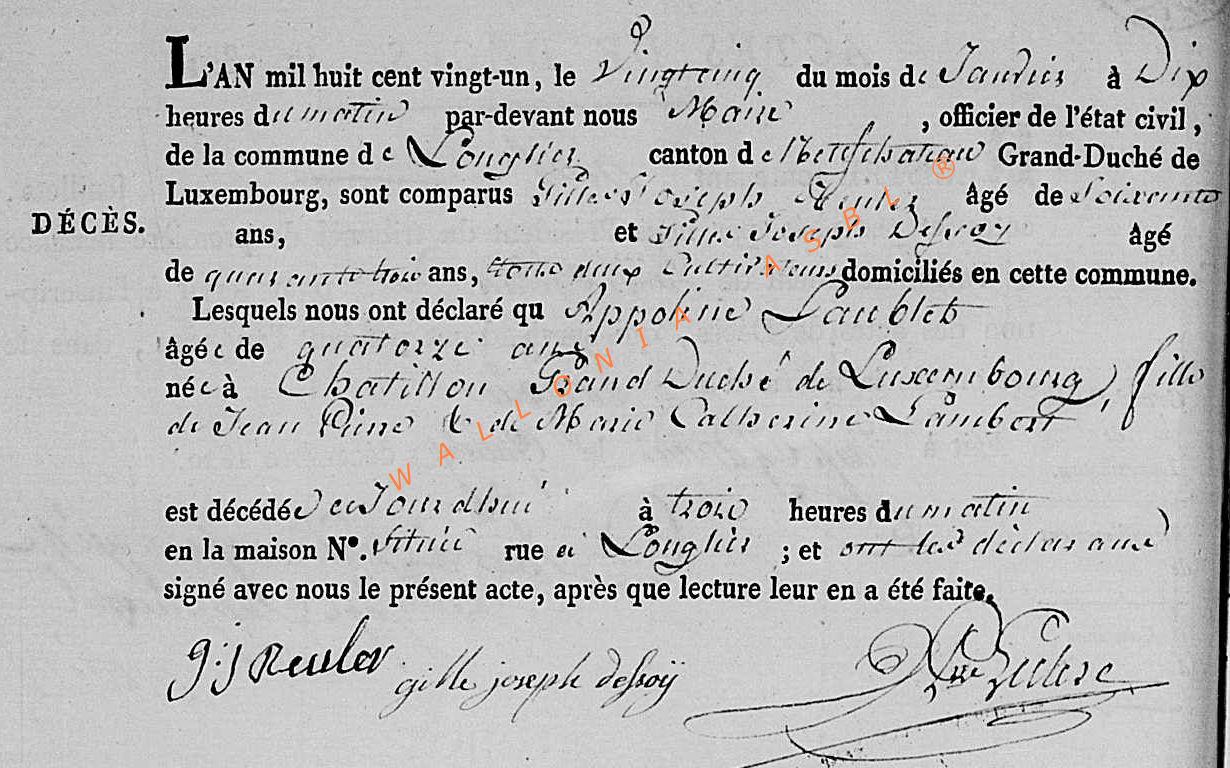 L'AN mil huit cent vingt-un, le Vingtcinq du mois de Janvier à Dix
heures du matin par-devant nous Maire , officier de l'état civil,
de la commune de Longlier canton de Neufchateau Grand-Duché de
Luxembourg, sont comparus Gilles Joseph Reuler âgé de Soixante
DÉCÈS.
ans, et Gilles Joseph Dessoy âgé
de quarante trois ans, tous deux Cultivateurs domiciliés en cette commune.
Lesquels nous ont déclaré qu Appoline Laublet
âgée de quatorze ans
née à Chatillon Grand Duché de Luxembourg, fille
de Jean Pierre & de Marie Catherine Lambert
est décédée cejourdhui à trois heures du matin
en la maison N°. située rue à Longlier ; et ont les déclarans
signé avec nous le présent acte, après que lecture leur en a été faite.
g: j Reuler gille joseph dessoÿ
WALLONIA ASBL ®